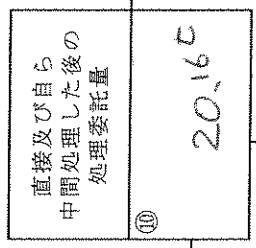 直接及び自ら
中間処理した後の
処理委託量
⑩
20.16t